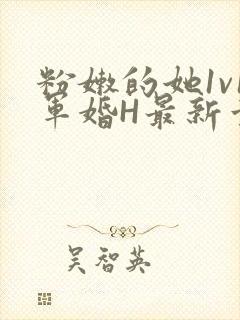 粉嫩的她1v1
军婚H最新章
吴智英